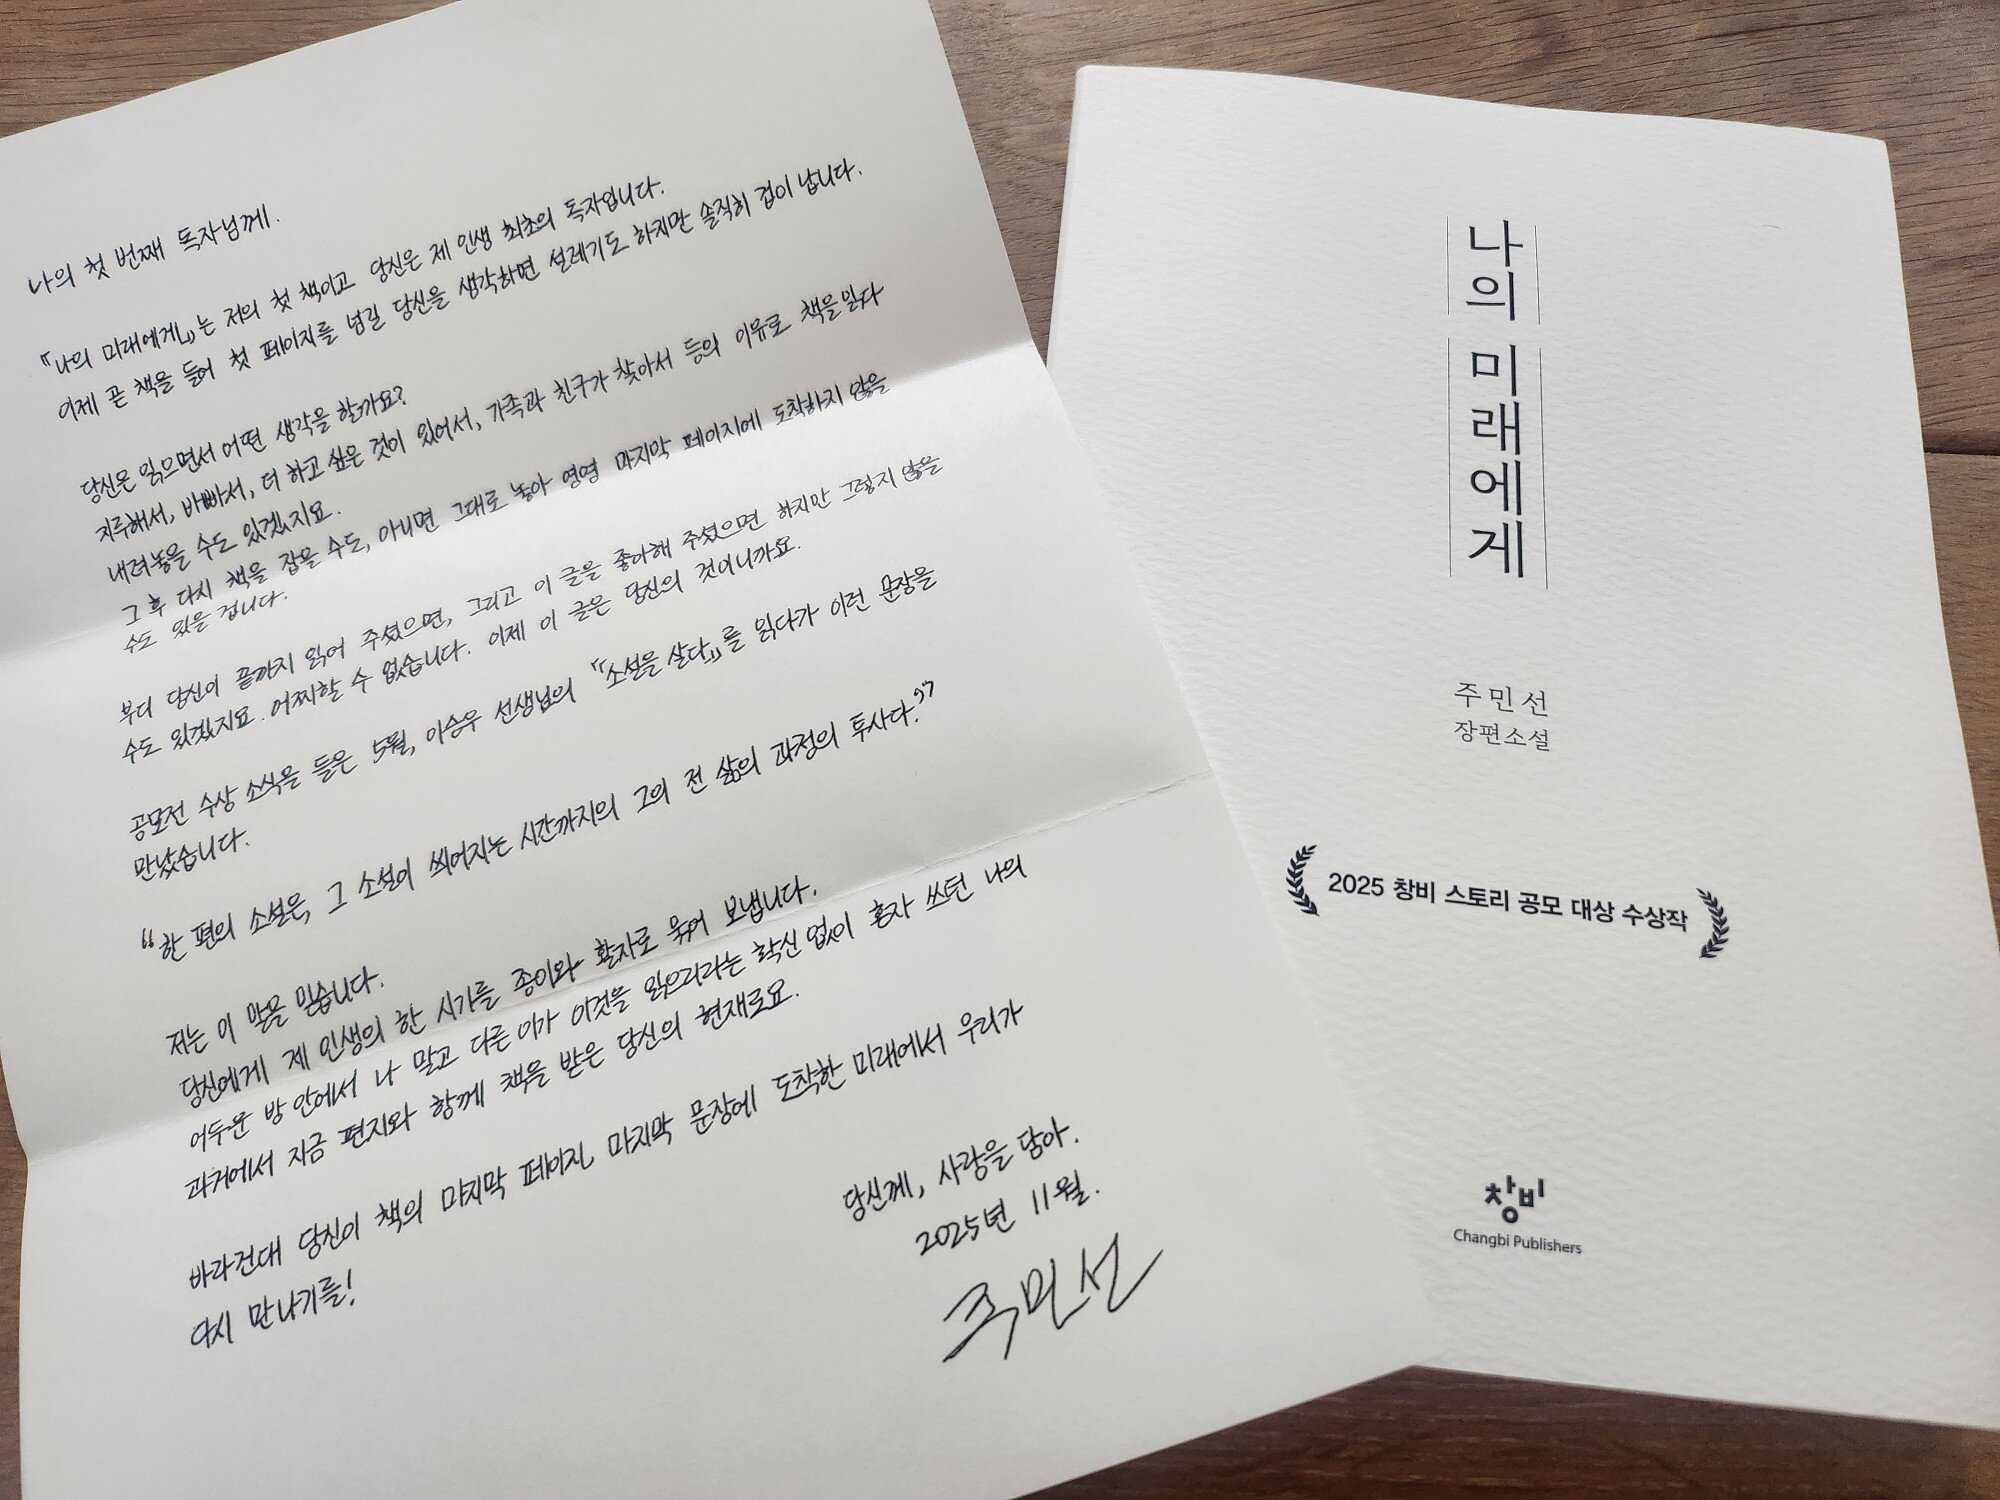 나의 첫 번째 독자님께.
『나의 미래에게』는 저의 첫 책이고 당신은 제 인생 최초의 독자입니다.
이제 곧 책을 들어 첫 페이지를 넘길 당신을 생각하면 설레기도 하지만 솔직히 겁이 납니다.
당신은 읽으면서 어떤 생각을 할까요?
지루해서, 바빠서, 더 하고 싶은 것이 있어서, 가족과 친구가 찾아서 등의 이유로 책을 읽다
내려놓을 수도 있겠지요.
그 후 다시 책을 잡을 수도, 아니면 그대로 놓아 영영 마지막 페이지에 도착하지 않을
수도 있을 겁니다.
부디 당신이 끝까지 읽어 주셨으면, 그리고 이 글을 좋아해 주셨으면 하지만 그렇지 않을
수도 있겠지요. 어찌할 수 없습니다. 이제 이 글은 당신의 것이니까요.
공모전 수상 소식을 들은 5월, 이승우 선생님의 『소설을 살다』를 읽다가 이런 문장을
만났습니다.
“한 편의 소설은, 그 소설이 씌어지는 시간까지의 그의 전 삶의 과정의 투사다.”
저는 이 말을 믿습니다.
당신에게 제 인생의 한 시기를 종이와 활자로 묶어 보냅니다.
어두운 방 안에서 나 말고 다른 이가 이것을 읽으리라는 확신 없이 혼자 쓰던 나의
과거에서 지금 편지와 함께 책을 받은 당신의 현재로요.
바라건대 당신이 책의 마지막 페이지, 마지막 문장에 도착한 미래에서 우리가
다시 만나기를!
당신께, 사랑을 담아.
2025년 11월.
주민선
나의 미래에게
주민선
장편소설
2025 창비 스토리 공모 대상 수상작
창비
Changbi Publishers